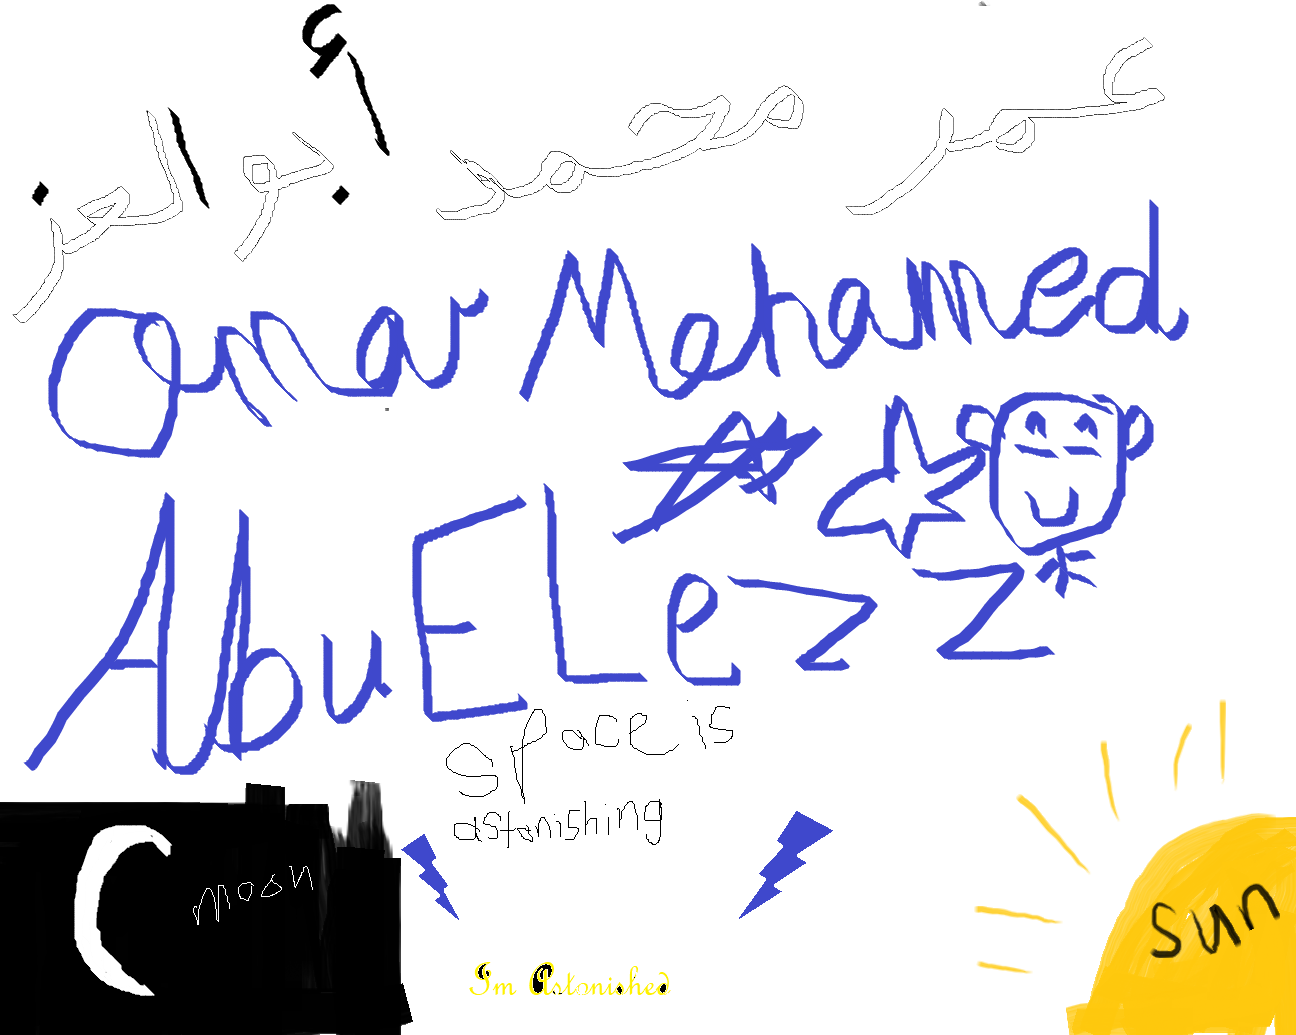 عمر محمد أبو العز
Omar Mohamed
AbuELezz
space is
astonishing
moon
sun
I'm Astonished